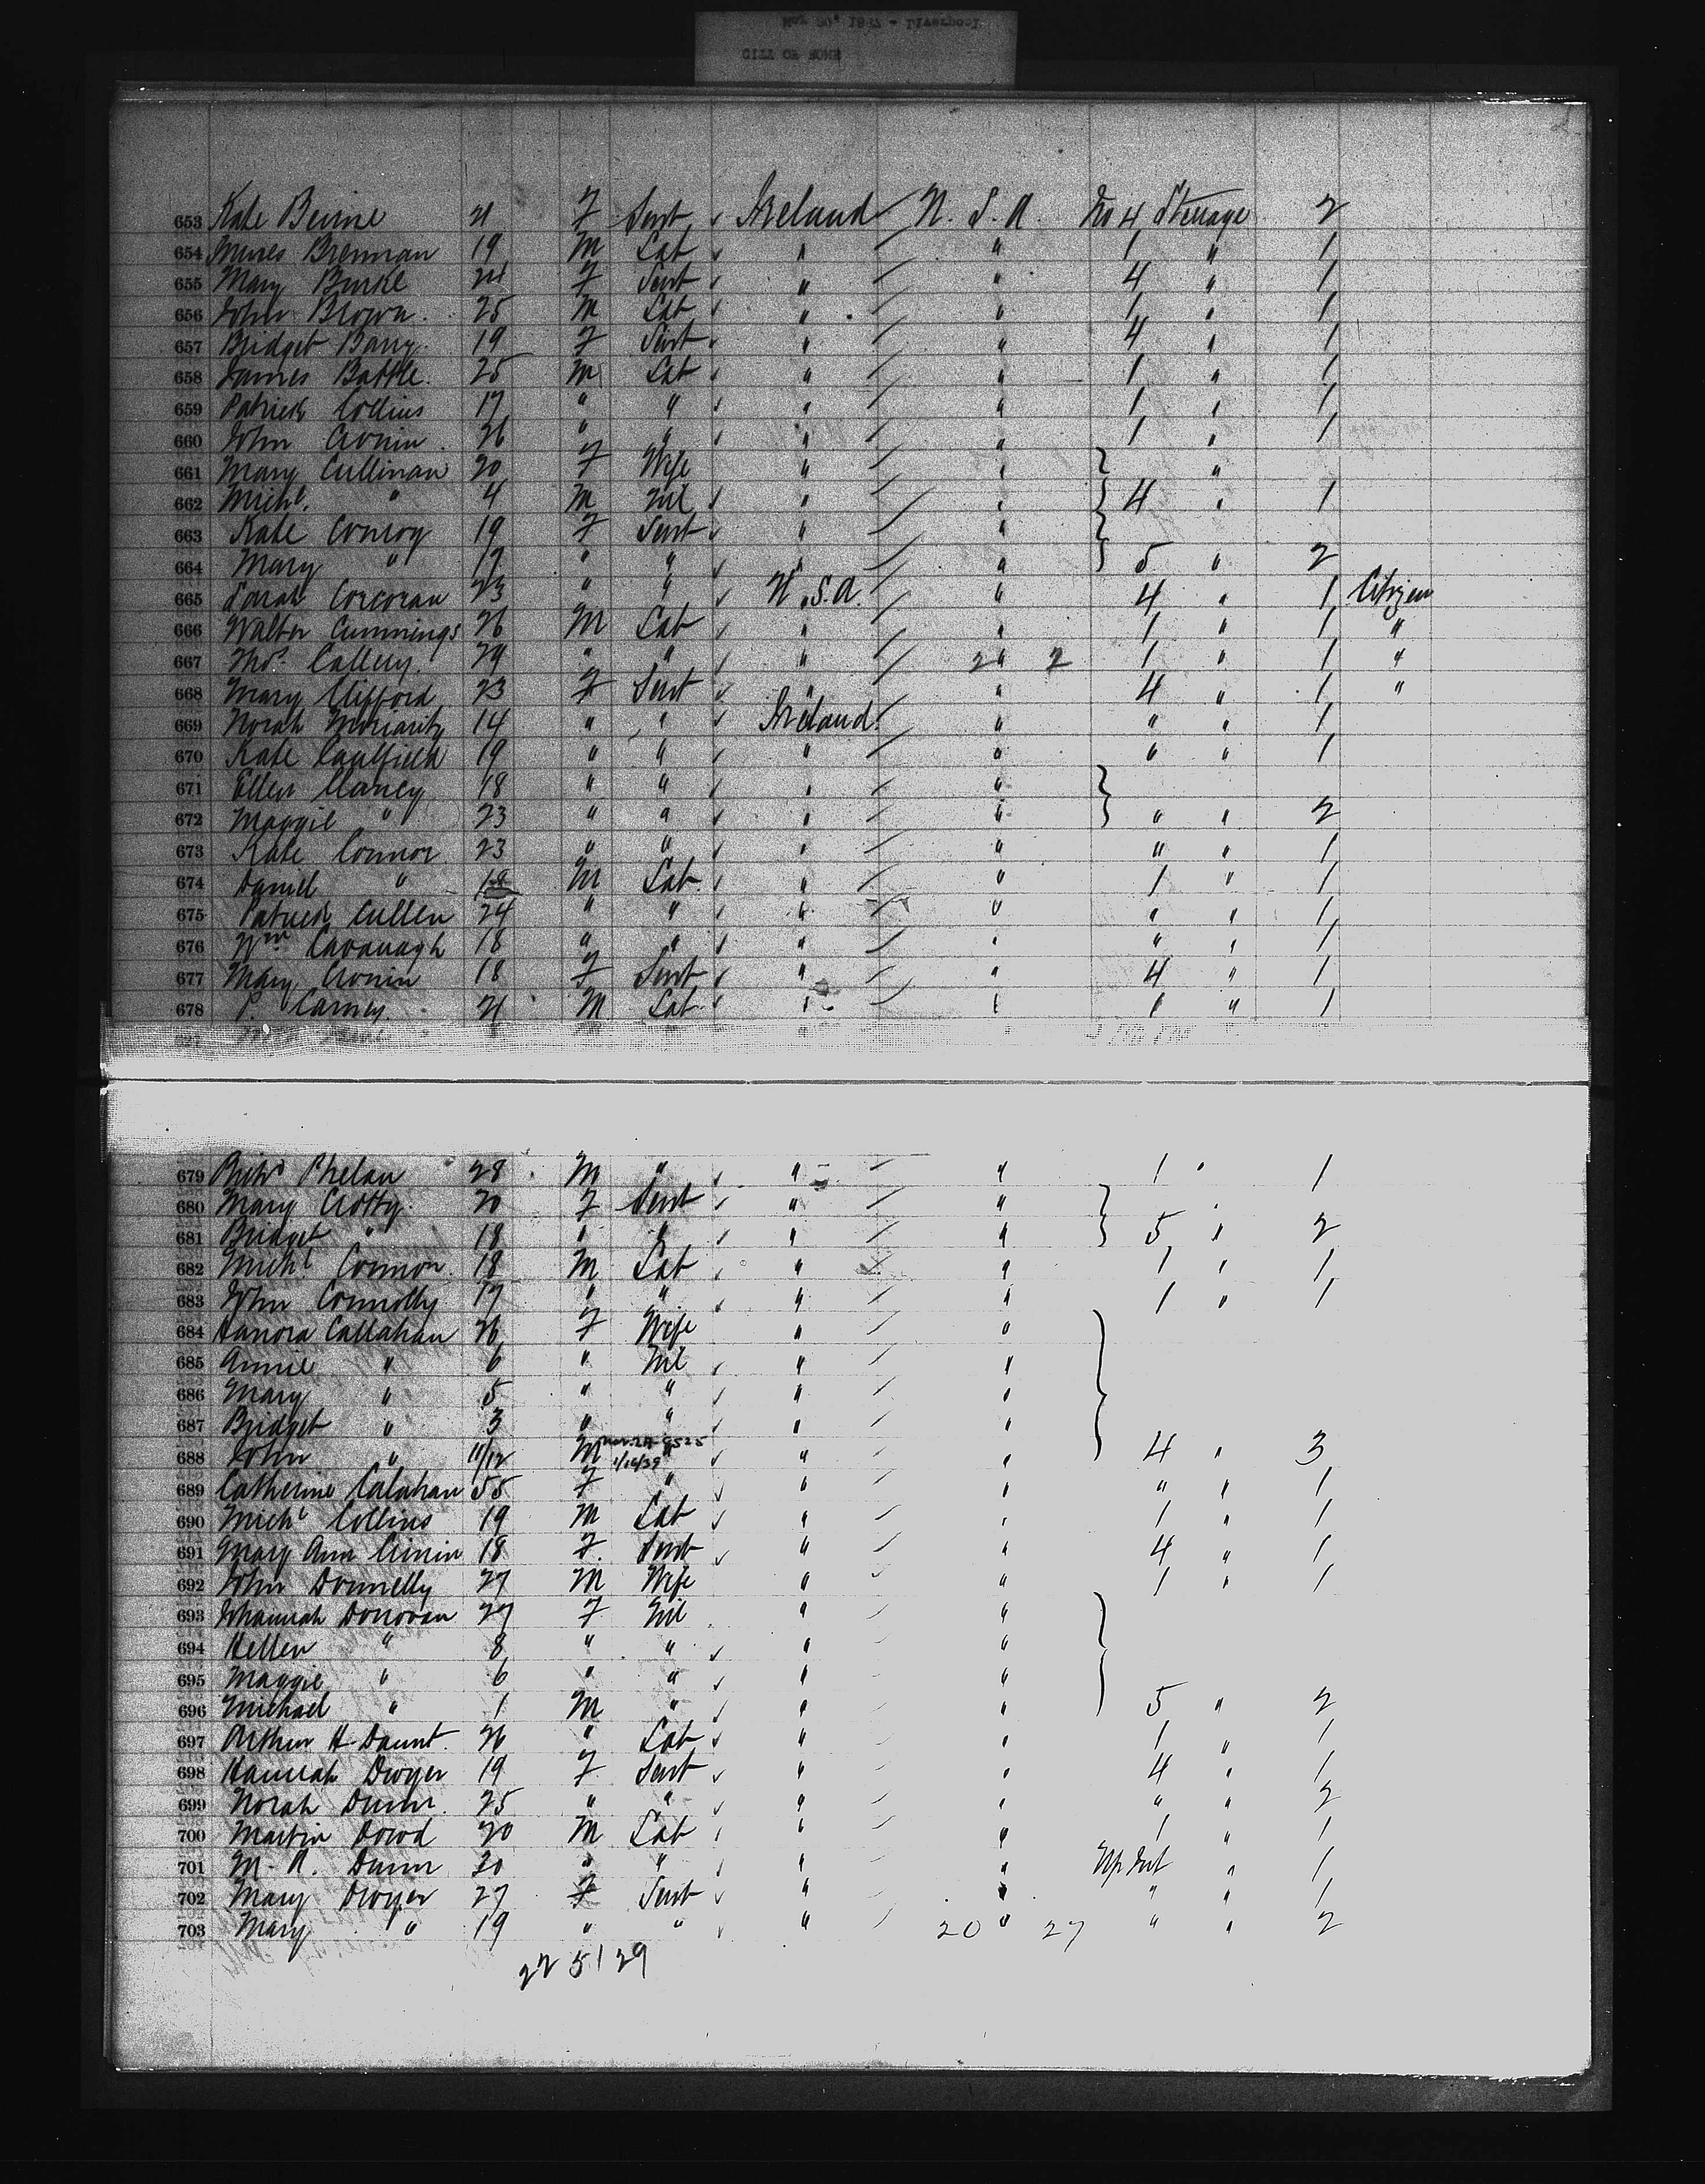 CITY OF ROME
653 Kate Beirne 21 F Servt Ireland U. S. A. No 4 Steerage 2
654 James Brennan 19 M Lab " " 1 " 1
655 Mary Burke 24 F Servt " " 4 " 1
656 John Brown. 25 M Lab " " 1 " 1
657 Bridget Barry 19 F Servt " " 4 " 1
658 James Battle. 25 M Lab " " 1 " 1
659 Patrick Collins 17 " " " " 1 " 1
660 John Cronin 26 " " " " 1 " 1
661 Mary Cullinan 20 F Wife " " "
662 Michl. " 4 M Nil " " 4 " 1
663 Kate Conroy 19 F Servt " "
664 Mary " 17 " " " " 5 " 2
665 Sarah Corcoran 23 " " U.S.A. " 4 " 1 Citizen
666 Walter Cummings 26 M Lab " " 1 " 1 "
667 Thos. Callery. 29 " " " 2 " 2 1 " 1 "
668 Mary Clifford 23 F Servt " " 4 " 1 "
669 Norah Moriarity 14 " " Ireland " " " 1
670 Kate Caulfield 19 " " " " " " 1
671 Ellen Clancy 18 " " " "
672 Maggie " 23 " " " " " " 2
673 Kate Connor 23 " " " " " " 1
674 Daniel " 18 M Lab. " " 1 " 1
675 Patrick Cullen 24 " " " " " " 1
676 Wm Cavanagh 18 " " " " " " 1
677 Mary Cronin 18 F Servt " " 4 " 1
678 P. Carney 21 M Lab " " 1 " 1
679 Richd Phelan 28 M " " " 1 " 1
680 Mary Crotty. 20 F Servt " " "
681 Bridget " 18 " " " " 5 " 2
682 Michl Connor. 18 M Lab " " 1 " 1
683 John Connolly 17 " " " " 1 " 1
684 Hanora Callahan 26 F Wife " "
685 Annie " 6 " Nil " "
686 Mary " 5 " " " "
687 Bridget " 3 " " " "
688 John " 11/12 M " " " 4 " 3
1/16/39
689 Catherine Calahan 55 F " " " " " 1
690 Michl Collins 19 M Lab " " 1 " 1
691 Mary Ann Cronin 18 F. Servt " " 4 " 1
692 John Donnelly 27 M Wife " " 1 " 1
693 Johannah Donovan 27 F Nil " "
694 Hellen " 8 " " " "
695 Maggie " 6 " " " "
696 Michael " 1 M " " " 5 " 2
697 Arthur H Daunt. 26 " Lab " " 1 " 1
698 Hannah Dwyer 19 F Servt " " 4 " 1
699 Norah Dunn. 25 " " " " " " 2
700 Martin Dowd 20 M Lab " " 1 " 1
701 M. A. Dunn 30 " " " " " 1
702 Mary Dwyer 27 F Servt " " " " 1
703 Mary " 19 " " " 20 " 27 " " 2
22 5 1 29